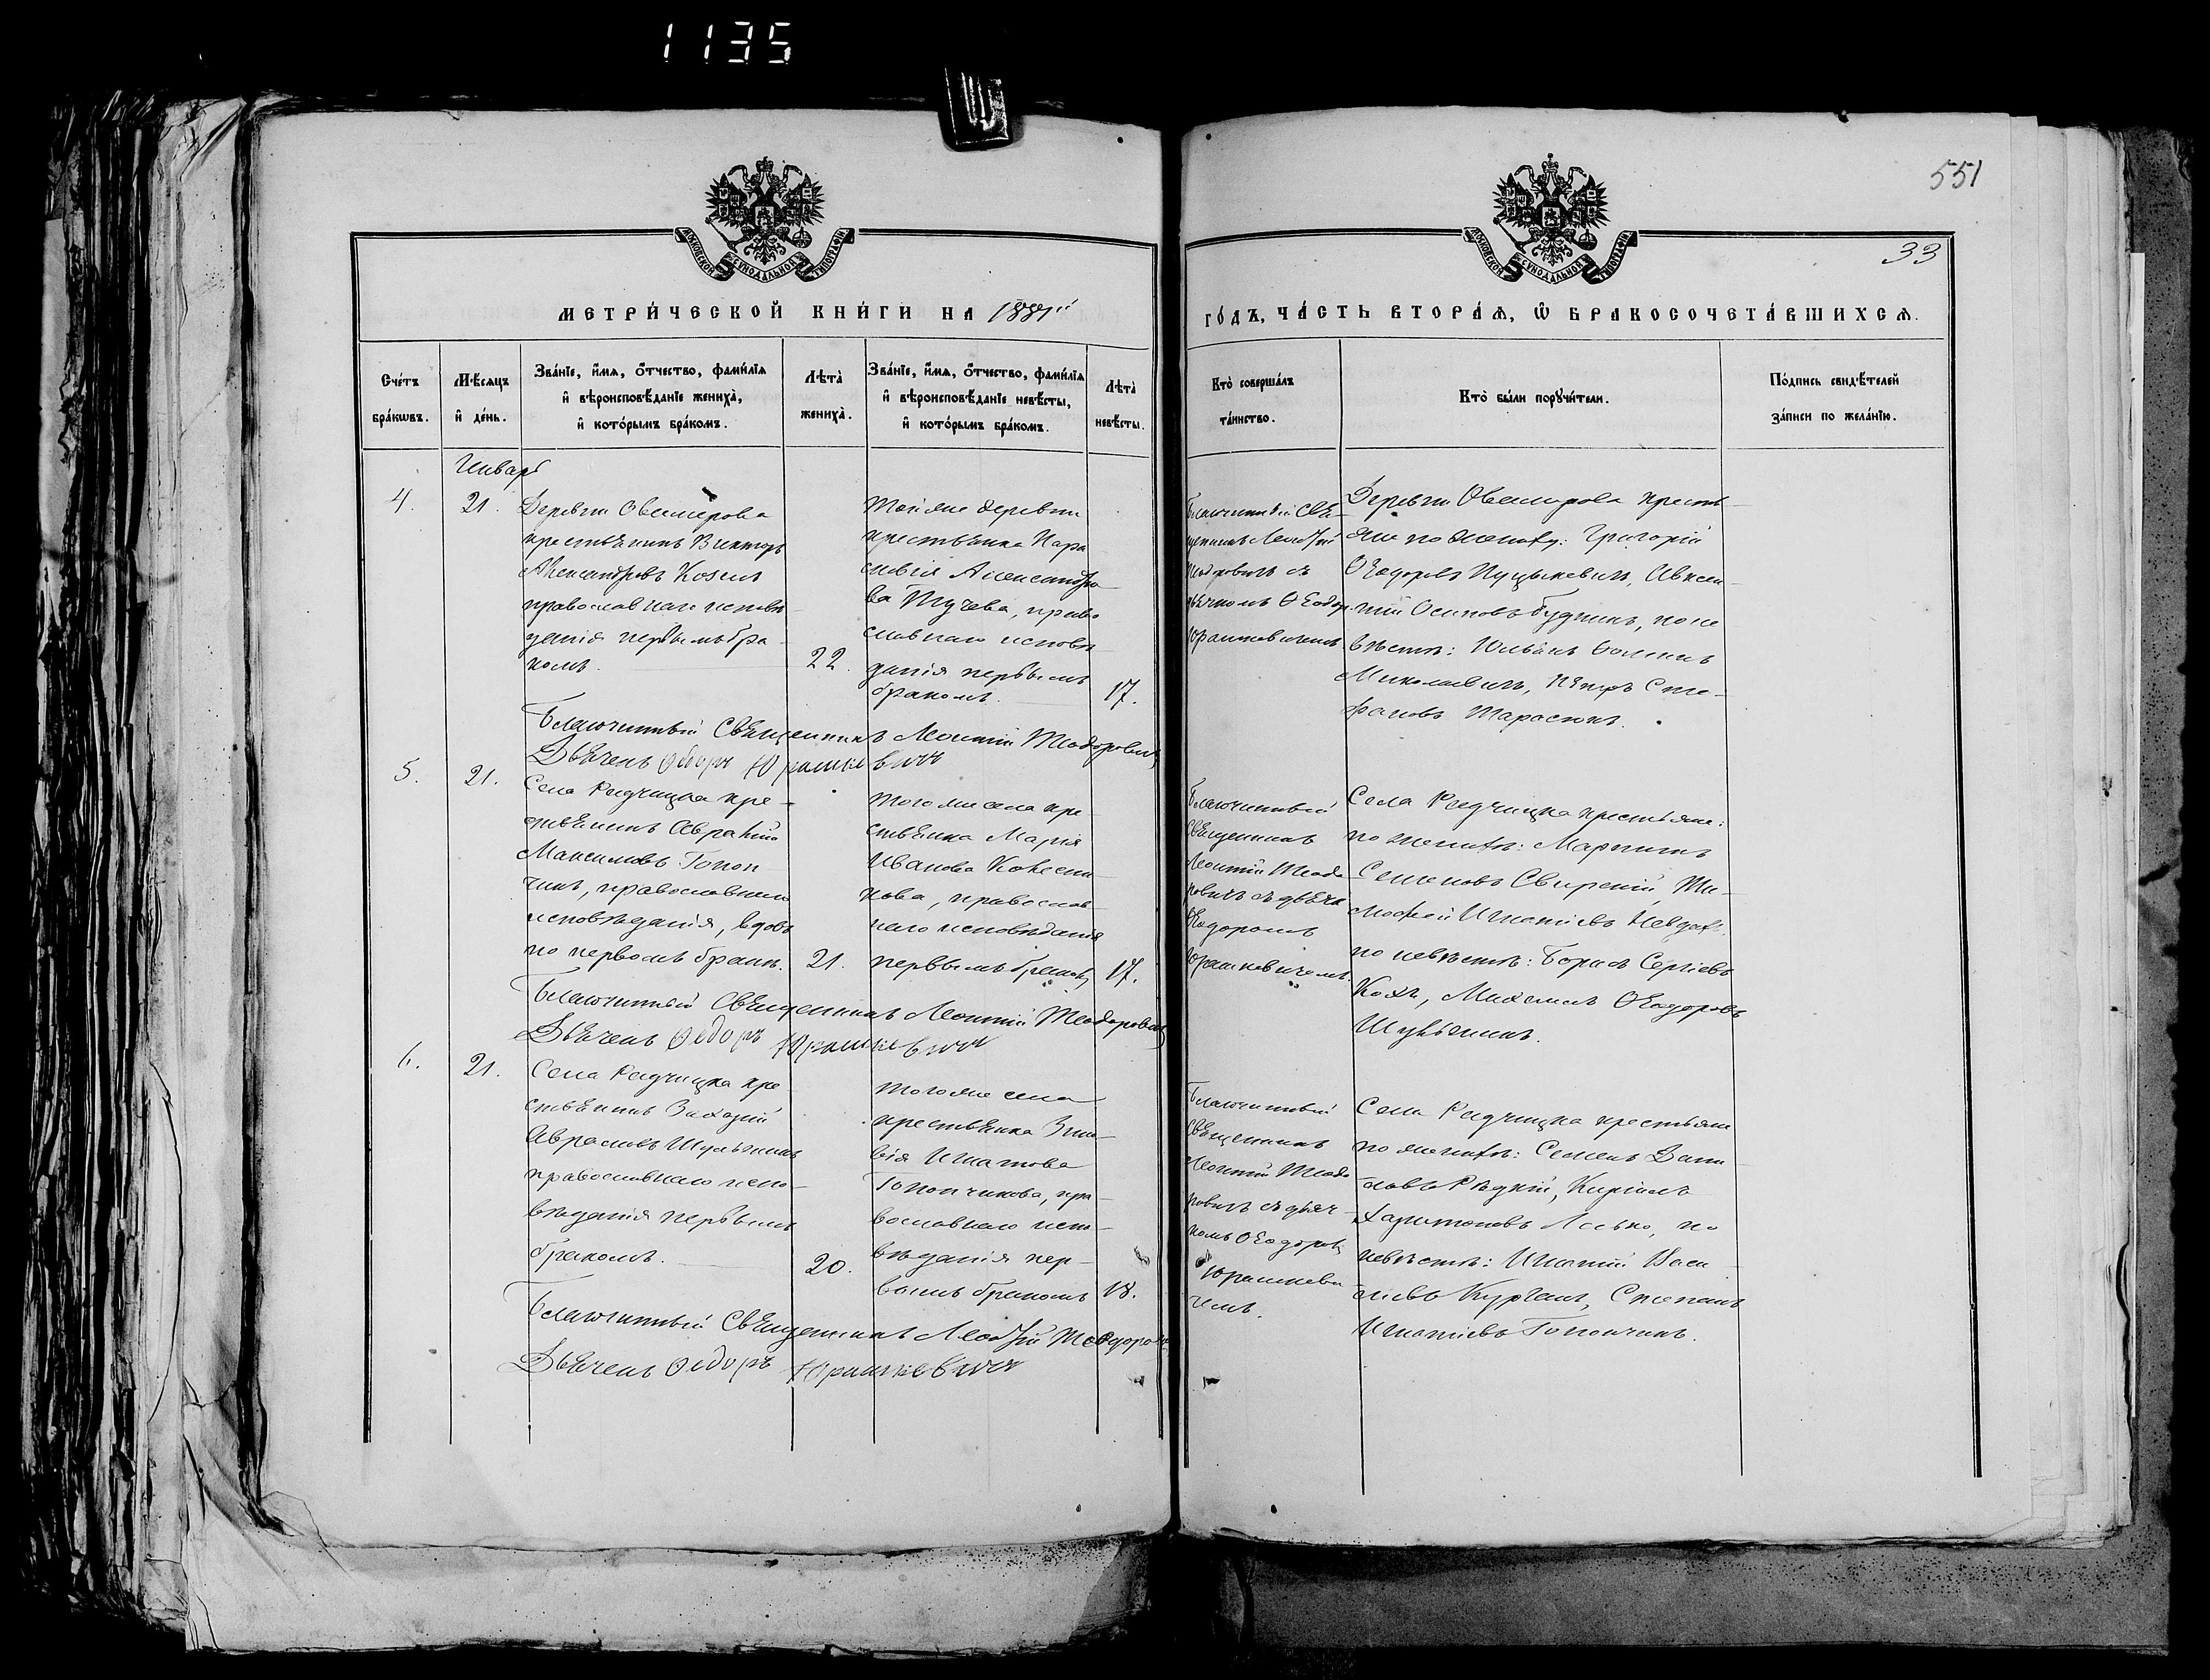 1135
551
33
МОСКОВСКОЙ СУНОДАЛЬНОЙ ТИПОГРАФІИ
МОСКОВСКОЙ СУНОДАЛЬНОЙ ТИПОГРАФІИ
МЕТРИ́ЧЕСКОЙ КНИ́ГИ НА 1881й
ГО́ДЪ, ЧА́СТЬ ВТОРА́Ѧ, Ѿ БРАКОСОЧЕТА́ВШИХСѦ.
Сче́тъ
бра́кѡвъ.
Мѣ́сѧцъ
и҆ де́нь.
Зва́нїе, и҆́мѧ, ѻ҆́тчество, фами́лїѧ
и҆ вѣроисповѣ́данїе жениха̀,
и҆ кото́рымъ бра́комъ.
Лѣта̀
жениха̀.
Зва́нїе, и҆́мѧ, ѻ҆́тчество, фами́лїѧ
и҆ вѣроисповѣ́данїе невѣ́сты,
и҆ кото́рымъ бра́комъ.
Лѣта̀
невѣ́сты.
Кто̀ соверша́лъ
та́инство.
Кто̀ бы́ли порꙋчи́тели.
По́дпись свидѣ́телей
за́писи по жела́нїю.
Январь
4.
21.
Деревни Овсемерова
крестьянинъ Викторъ
Александровъ Козелъ
православнаго исповѣ-
данія первымъ бра-
комъ.
22.
Тойже деревни
крестьянка Пара
скевія Александро
ва Тучева, право
славнаго исповѣ
данія первымъ
бракомъ.
17.
Благочинный Свя-
щенникъ Леонтій
Теодоровичъ съ
дьячкомъ Ѳеодор.
Юрашкевичемъ
Деревни Овсемерова крестья-
яне по жениху: Григорій
Ѳеодоровъ Пуцыкевичъ, Авксен-
тій Осиповъ Будникъ, по не
вѣстѣ:
Миколаевичъ, Петръ Сте-
фановъ Тарасюкъ.
Благочинный Священникъ Леонтій Теодоровичъ
Дьячекъ Ѳедоръ Юрашкевичъ
5.
21.
Села Рѣдчицка кре-
стьянинъ Аврамій
Максимовъ Гопон-
чикъ, православнаго
исповѣданія, вдовъ
по первомъ бракѣ.
21.
Того же села кре
стьянка Марія
Иванова
нова, православ-
наго исповѣданія
первымъ бракомъ
17.
Благочинный
Священникъ
Леонтій Теодо
ровичъ съ дьячк
Ѳеодоромъ
Юрашкевичемъ.
Села Рѣдчицка крестьяне:
по женихѣ: Мартинъ
Семеновъ Свирскій, Ти-
мофей Игнатіевъ
по невѣстѣ: Борисъ Сергіевъ
Кохъ, Михаилъ Ѳеодоровъ
Шульжикъ.
Благочинный Священникъ Леонтій Теодоровичъ
Дьячекъ Ѳедоръ Юрашкевичъ
6.
21.
Села Рѣдчицка кре
стьянинъ Захарій
Аврамовъ Шульжикъ
православнаго испо-
вѣданія первымъ
бракомъ.
20.
Того же села
крестьянка Зино-
вія Игнатова
Гопончикова, пра-
вославнаго испо-
вѣданія пер-
вымъ бракомъ
18.
Благочинный
Священникъ
Леонтій Теодо
ровичъ съ дьяч-
комъ Ѳеодоромъ
Юрашкеви
чемъ.
Села Рѣдчицка крестьяне
по женихѣ: Семенъ Дани
ловъ Рѣдкій, Кирилъ
Харитоновъ Ласько, по
невѣстѣ: Игнатій Васи-
ліевъ Курганъ, Степанъ
Игнатіевъ Гопончикъ.
Благочинный Священникъ Леонтій Теодорович
Дьячекъ Ѳедоръ Юрашкевичъ